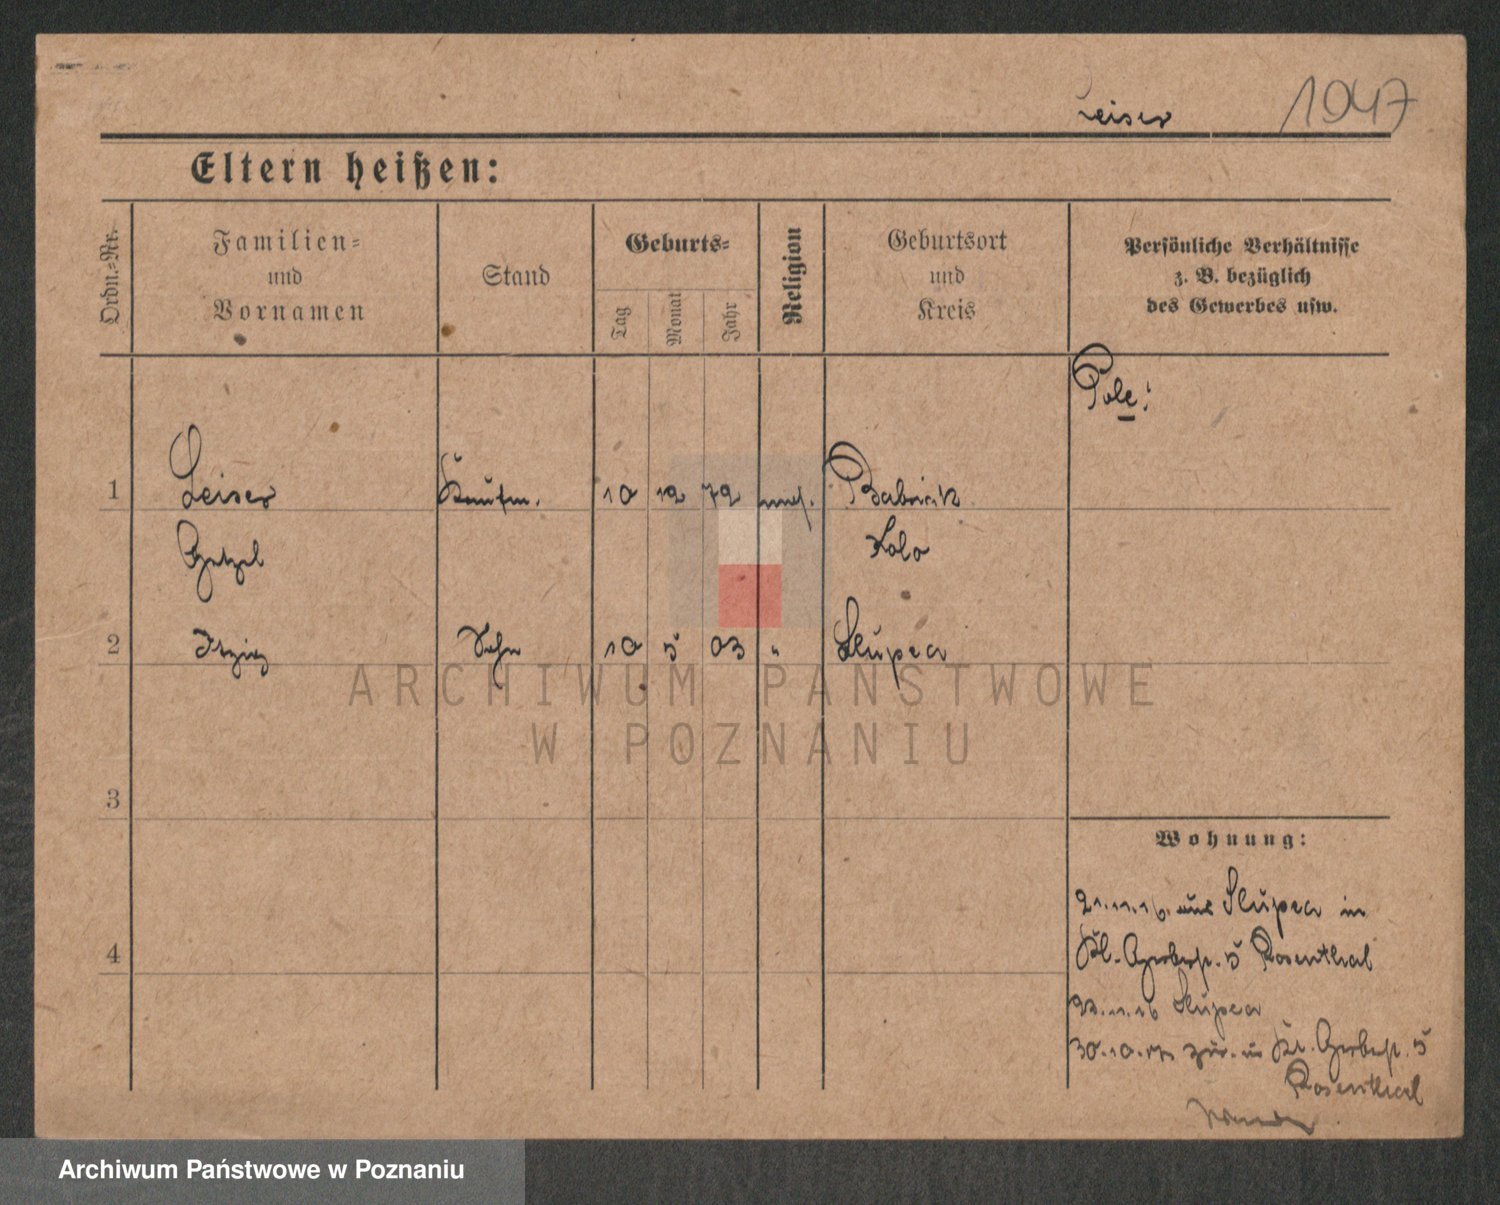 Leiser 1947
Eltern heißen:
Ordn.=Nr.
Familien=
und
Vornamen
Stand
Geburts=
Tag
Monat
Jahr
Religion
Geburtsort
und
Kreis
Persönliche Verhältnisse
z. B. bezüglich
des Gewerbes usw.
Pole!
1 Leiser Kaufm. 10 12 72 mos. Babiak
Getzel Kolo
2 Itzig Sohn 10 5 03 " Slupca
ARCHIWUM PAŃSTWOWE
W POZNANIU
3
Wohnung:
21.11.16. aus Slupca in
4 Kl. Gerberstr. 5 Rosenthal
22.11.16 Slupca
30.10. zur. in Kl. Gerberstr. 5
Rosenthal
Archiwum Państwowe w Poznaniu